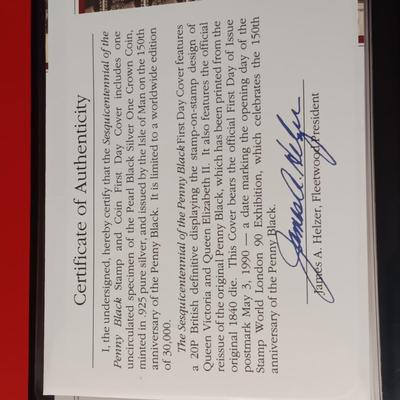 Certificate of Authenticity
I, the undersigned, hereby certify that the Sesquicentennial of the
Penny Black Stamp and Coin First Day Cover includes one
uncirculated specimen of the Pearl Black Silver One Crown Coin,
minted in .925 pure silver, and issued by the Isle of Man on the 150th
anniversary of the Penny Black. It is limited to a worldwide edition
of 30,000.
The Sesquicentennial of the Penny Black First Day Cover features
a 20P British definitive displaying the stamp-on-stamp design of
Queen Victoria and Queen Elizabeth II. It also features the official
reissue of the original Penny Black, which has been printed from the
original 1840 die. This Cover bears the official First Day of Issue
postmark May 3, 1990 — a date marking the opening day of the
Stamp World London 90 Exhibition, which celebrates the 150th
anniversary of the Penny Black.
James A. Helzer
James A. Helzer, Fleetwood President